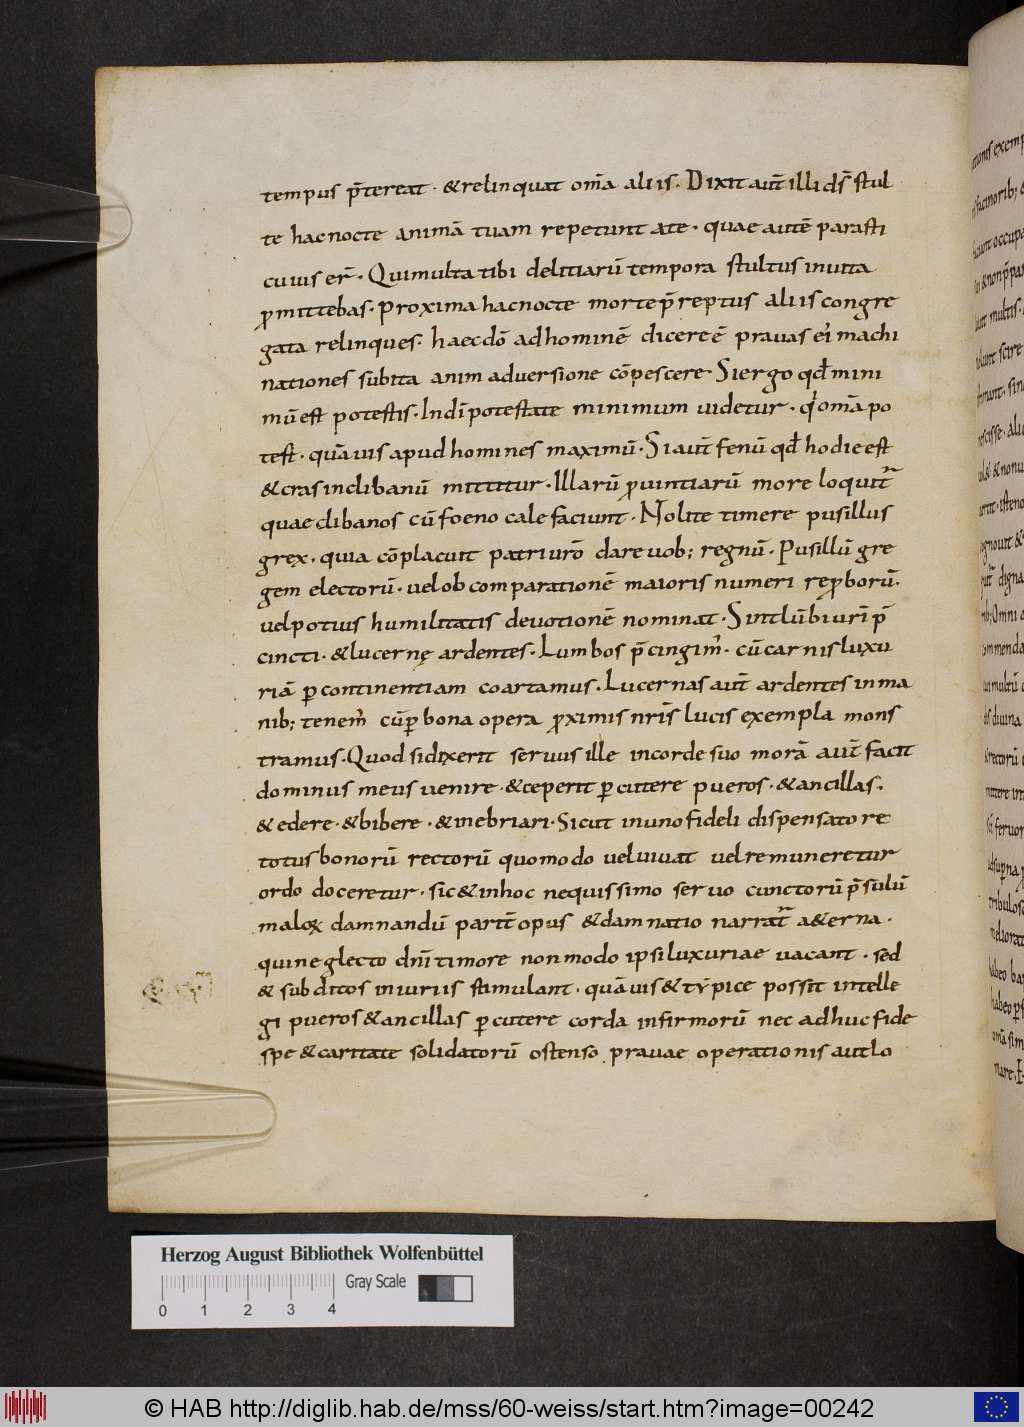 tempus p̄tereat · & relinquat om̄a aliis · Dixit aut̄ illi ds̄ stul
te hac nocte animā tuam repetunt a te · quae autē parasti
cuius er̄ · Qui multa tibi delitiarū tempora stultus in uita
ꝓmittebas · Proxima hac nocte morte p̄reptus aliis congre
gata relinques · haec dō ad hominē dicere ē prauas ei machi
nationes subita animaduersione cōpescere Si ergo qđ mini
mū est potestis · Indī potestate minimum uidetur · q om̄a po
test · quāuis apud homines maximū · Si aut̄ fenū qđ hodie est
& cras in clibanū mittitur · Illarū ꝓuintiarū more loquit̄
quae clibanos cū foeno calefaciunt · Nolite timere pusillus
grex · quia cōplacuit patri urō dare uob; regnū · Pusillū gre
gem electorū · uel ob comparationē maioris numeri reꝓborū ·
uel potius humilitatis deuotionē nominat · Sint lūbi urī p̄
cincti · & lucernę ardentes · Lumbos p̄cingim̓ · cū carnis luxu
riā ꝑ continentiam coartamus · Lucernas aut̄ ardentes in ma
nib; tenem̓ cū ꝑ bona opera ꝓximis nrīs lucis exempla mons
tramus · Quod si dixerit seruus ille in corde suo morā aut̄ facit
dominus meus uenire · & ceperit ꝑcutere pueros · & ancillas ·
& edere · & bibere · & inebriari · Sicut in uno fideli dispensatore
totus bonorū rectorū quomodo uel uiuat uel remuneretur
ordo doceretur · sic & in hoc nequissimo seruo cunctorū p̄sulū
maloꝝ damnandū part̄ opus & damnatio narrat̄ a&erna ·
qui neglecto dnī timore non modo ipsi luxuriae uacant · sed
& subditos iniuriis stimulant · quāuis & tẏpice possit intelle
gi pueros & ancillas ꝑcutere corda infirmorū nec adhuc fide
spe & caritate solidatorū ostenso prauae operationis aut lo
Herzog August Bibliothek Wolfenbüttel
Gray Scale
0 1 2 3 4
© HAB http://diglib.hab.de/mss/60-weiss/start.htm?image=00242